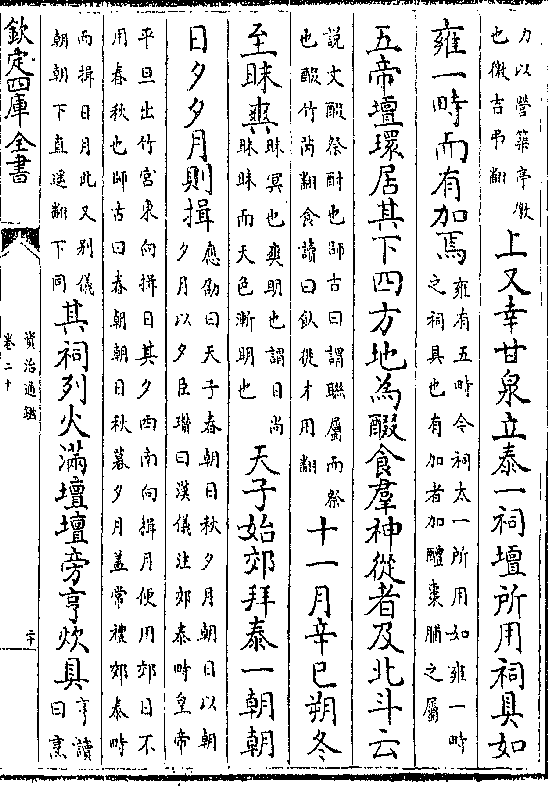 力以營築亭徼
也徼吉弔翻
上又幸甘泉立泰一祠壇所用祠具如
雍一畤而有加焉
雍有五畤令祠太一所用如雍一畤
之祠具也有加者加醴棗脯之屬
五帝壇環居其下四方地為醊食羣神從者及北斗云
說文醊祭酹也師古曰謂聯屬而祭
也醊竹芮翻食讀曰飤從才用翻
十一月辛巳朔冬
至昧爽
昧冥也爽明也謂日尚
昧昧而天色漸明也
天子始郊拜泰一朝朝
日夕夕月則揖
應劭曰天子春朝日秋夕月朝日以朝
夕月以夕臣瓚曰漢儀注郊泰畤皇帝
平旦出竹宫東向揖日其夕西南向揖月便用郊日不
用春秋也師古曰春朝朝日秋暮夕月盖常禮郊泰畤
而揖日月此又别儀
朝朝下直遥翻下同
其祠列火滿壇壇旁亨炊具
亨讀
曰烹
欽定四庫全書
資治通鑑
卷二十